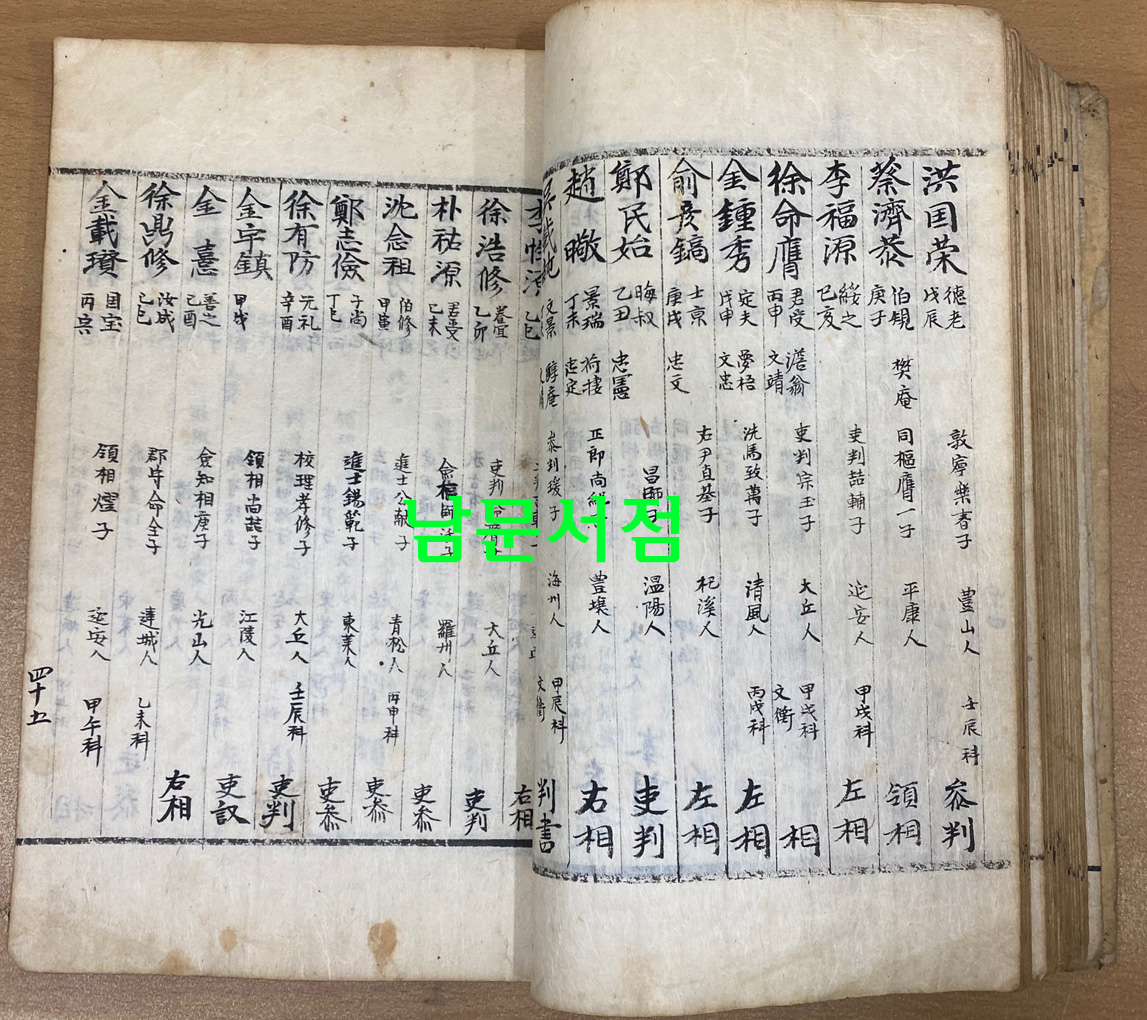 洪国荣 德老 戊辰 敦寧樂春子 豊山人 壬辰科 叅判
蔡濟恭 伯規 庚子 樊庵 同樞膺一子 平康人 領相
李福源 綏之 己亥 吏判喆輔子 延安人 甲戌科 左相
徐命膺 君受 丙申 澹翁 文靖 吏判宗玉子 大丘人 甲戌科 文衡 相
金鍾秀 定夫 戊申 夢梧 文忠 洗馬致萬子 清風人 丙戌科 左相
俞彦鎬 士京 庚戌 忠文 右尹直基子 杞溪人 左相
鄭民始 晦叔 乙丑 忠憲 昌師子 温陽人 吏判
趙暾 景瑞 丁未 荷棲 忠定 正郎尚 豊壤人 右相
文景 醇庵 叅判瑗子 海州人 甲辰科 文衡 判書
乙巳 右相
徐浩修 養直 乙卯 吏判命膺子 大丘人 吏判
朴祜源 己未 僉樞師 子 羅州人 吏叅
沈念祖 伯修 甲寅 進士公献子 青松人 丙申科 吏叅
鄭志儉 子尚 丁巳 進士錫範子 東萊人 吏叅
徐有防 元礼 辛酉 校理孝修子 大丘人 壬辰科 吏判
金宇鎮 甲戌 領相尚喆子 江陵人 吏議
金憙 善之 己酉 僉知相庚子 光山人 右相
徐鼎修 汝成 己巳 郡守命全子 達城人 乙未科
金載瓚 国宝 丙寅 領相熤子 延安人 甲午科
四十五
남문서점